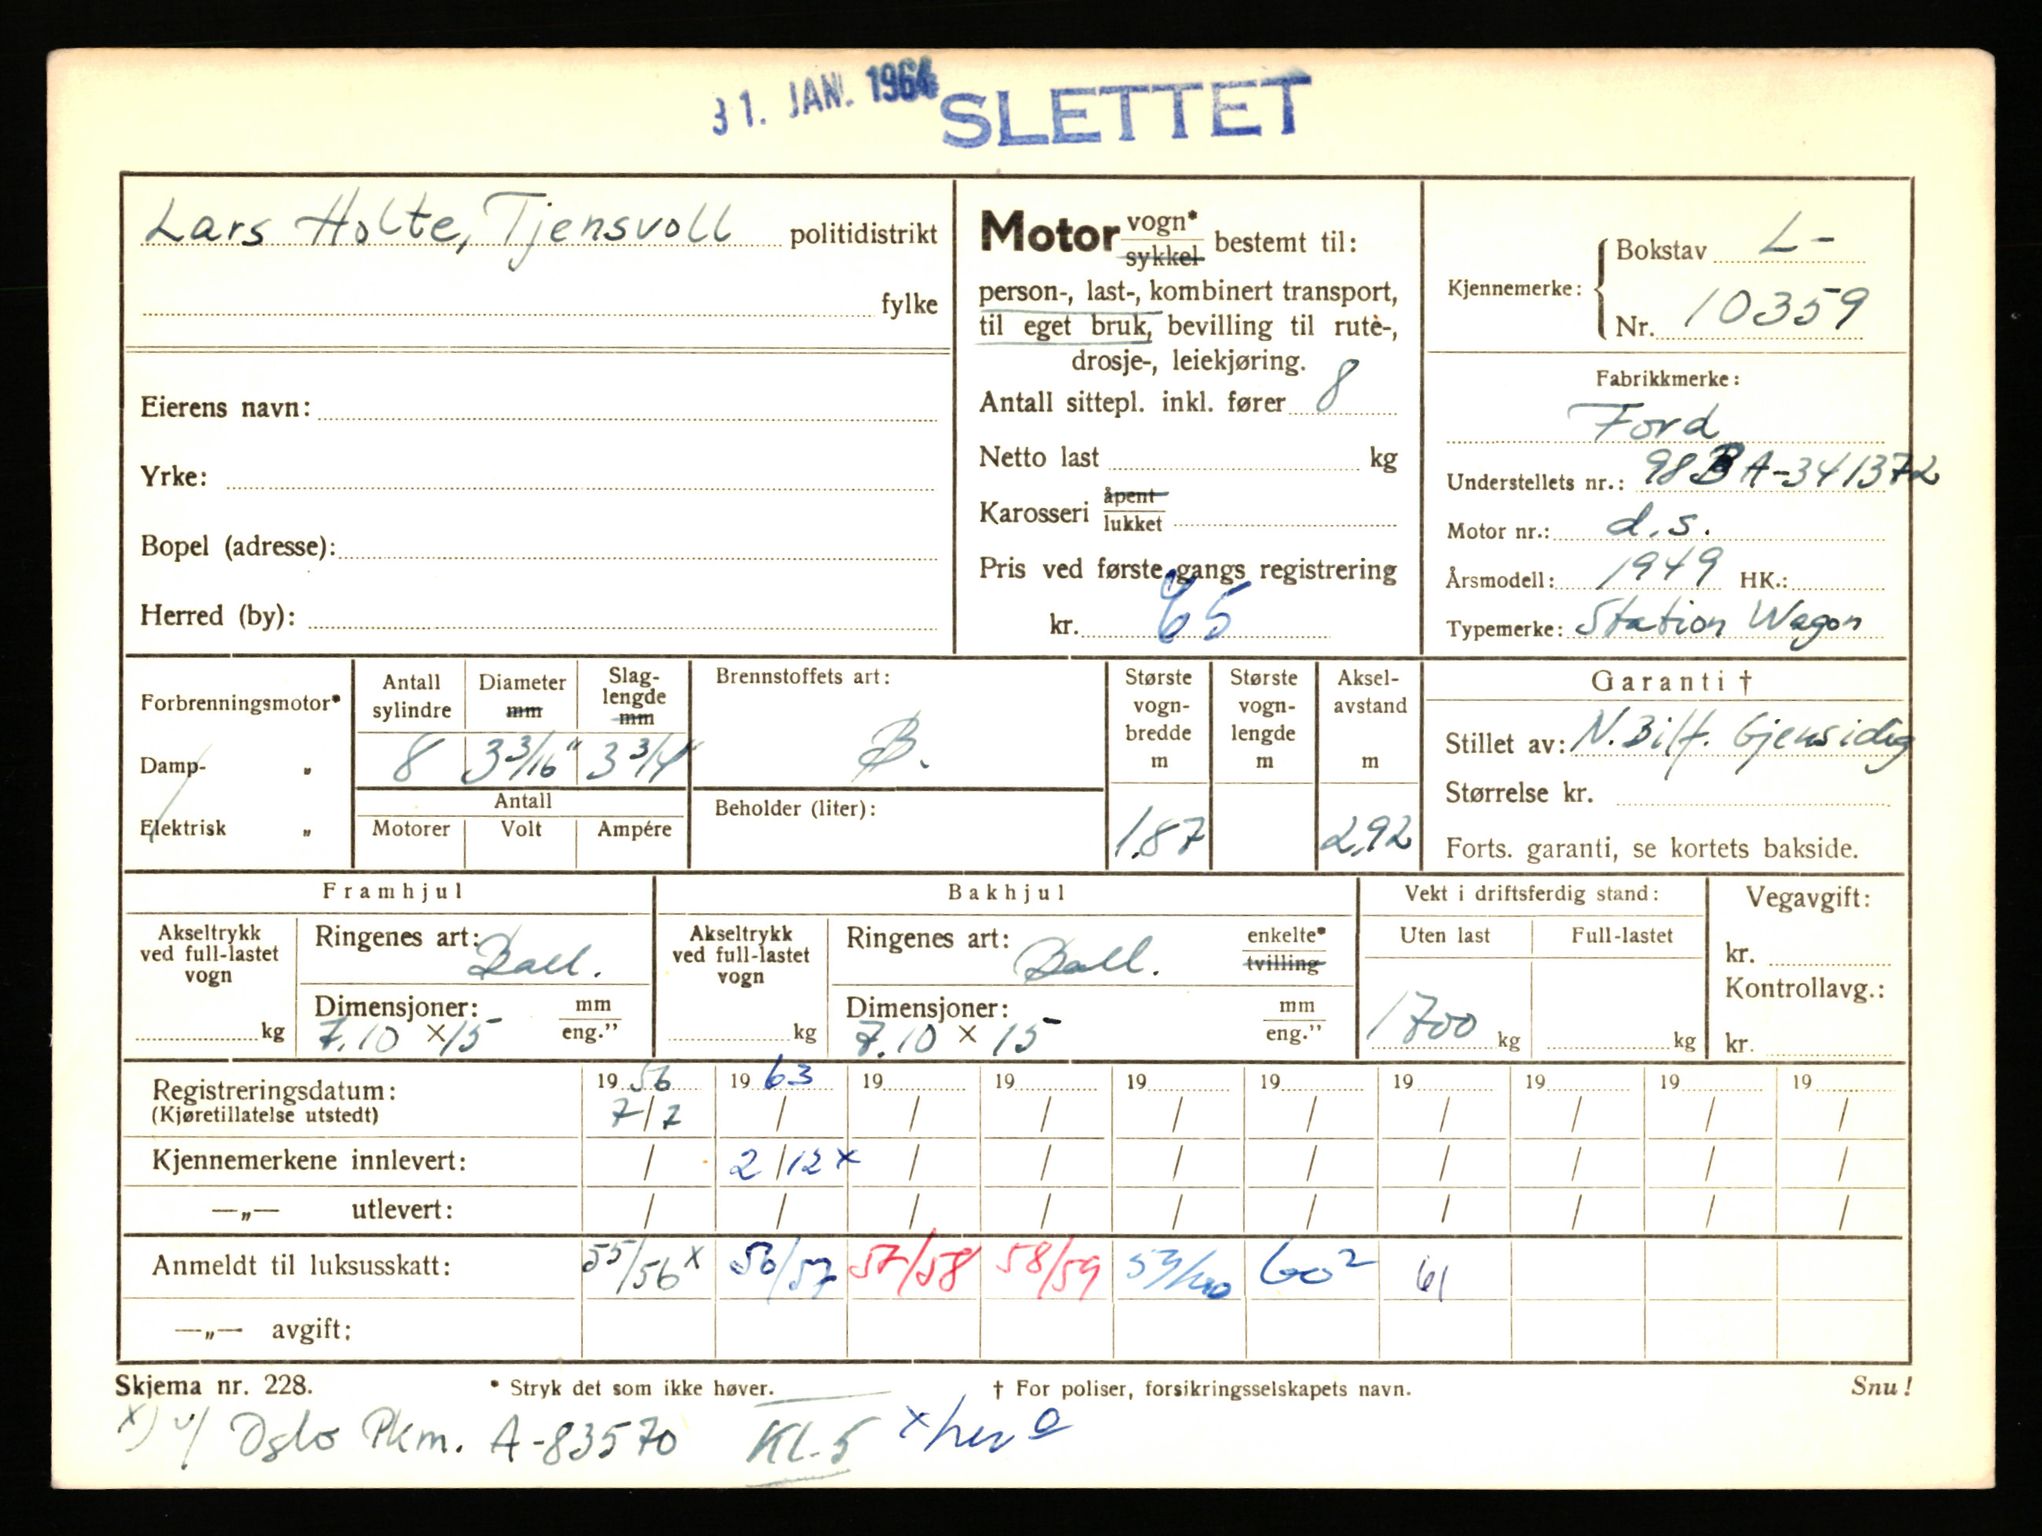 31. JAN. 1964 SLETTET
Lars Holte, Tjensvoll politidistrikt
fylke
Eierens navn:
Yrke:
Bopel (adresse):
Herred (by):
Motor vogn* sykkel bestemt til:
person-, last-, kombinert transport,
til eget bruk, bevilling til rutè-,
drosje-, leiekjøring.
Antall sittepl. inkl. fører 8
Netto last kg
Karosseri åpent lukket
Pris ved første gangs registrering
kr. 65
Kjennemerke: Bokstav L-
Nr. 10359
Fabrikkmerke:
Ford
Understellets nr.: 98BA-341372
Motor nr.: d.s.
Årsmodell: 1949 HK.:
Typemerke: Station Wagon
Forbrenningsmotor*
Damp- "
Elektrisk "
Antall sylindre Diameter mm Slag-lengde mm
8 3 3/16" 3 3/4"
Antall
Motorer Volt Ampére
Brennstoffets art:
B.
Beholder (liter):
Største vogn-bredde m
1.87
Største vogn-lengde m
Aksel-avstand m
2,92
Garanti †
Stillet av: N. Bilf. Gjensidig
Størrelse kr.
Forts. garanti, se kortets bakside.
Framhjul
Akseltrykk ved full-lastet vogn
kg
Ringenes art: Ball.
Dimensjoner: mm eng."
7.10 x 15
Bakhjul
Akseltrykk ved full-lastet vogn
kg
Ringenes art: Ball. enkelte* tvilling
Dimensjoner: mm eng."
7.10 x 15
Vekt i driftsferdig stand:
Uten last Full-lastet
1700 kg kg
Vegavgift:
kr.
Kontrollavg.:
kr.
Registreringsdatum: 19 56 19 63 19 19 19 19 19 19 19 19
(Kjøretillatelse utstedt) 7/7 / / / / / / / / /
Kjennemerkene innlevert: / 2/12 x / / / / / / / /
—„— utlevert: / / / / / / / / / /
Anmeldt til luksusskatt: 55/56 x 56/57 57/58 58/59 59/60 60² 61
—„— avgift:
Skjema nr. 228. * Stryk det som ikke høver. † For poliser, forsikringsselskapets navn. Snu!
x) v/ Oslo Pkm. A-83570 Kl. 5 x